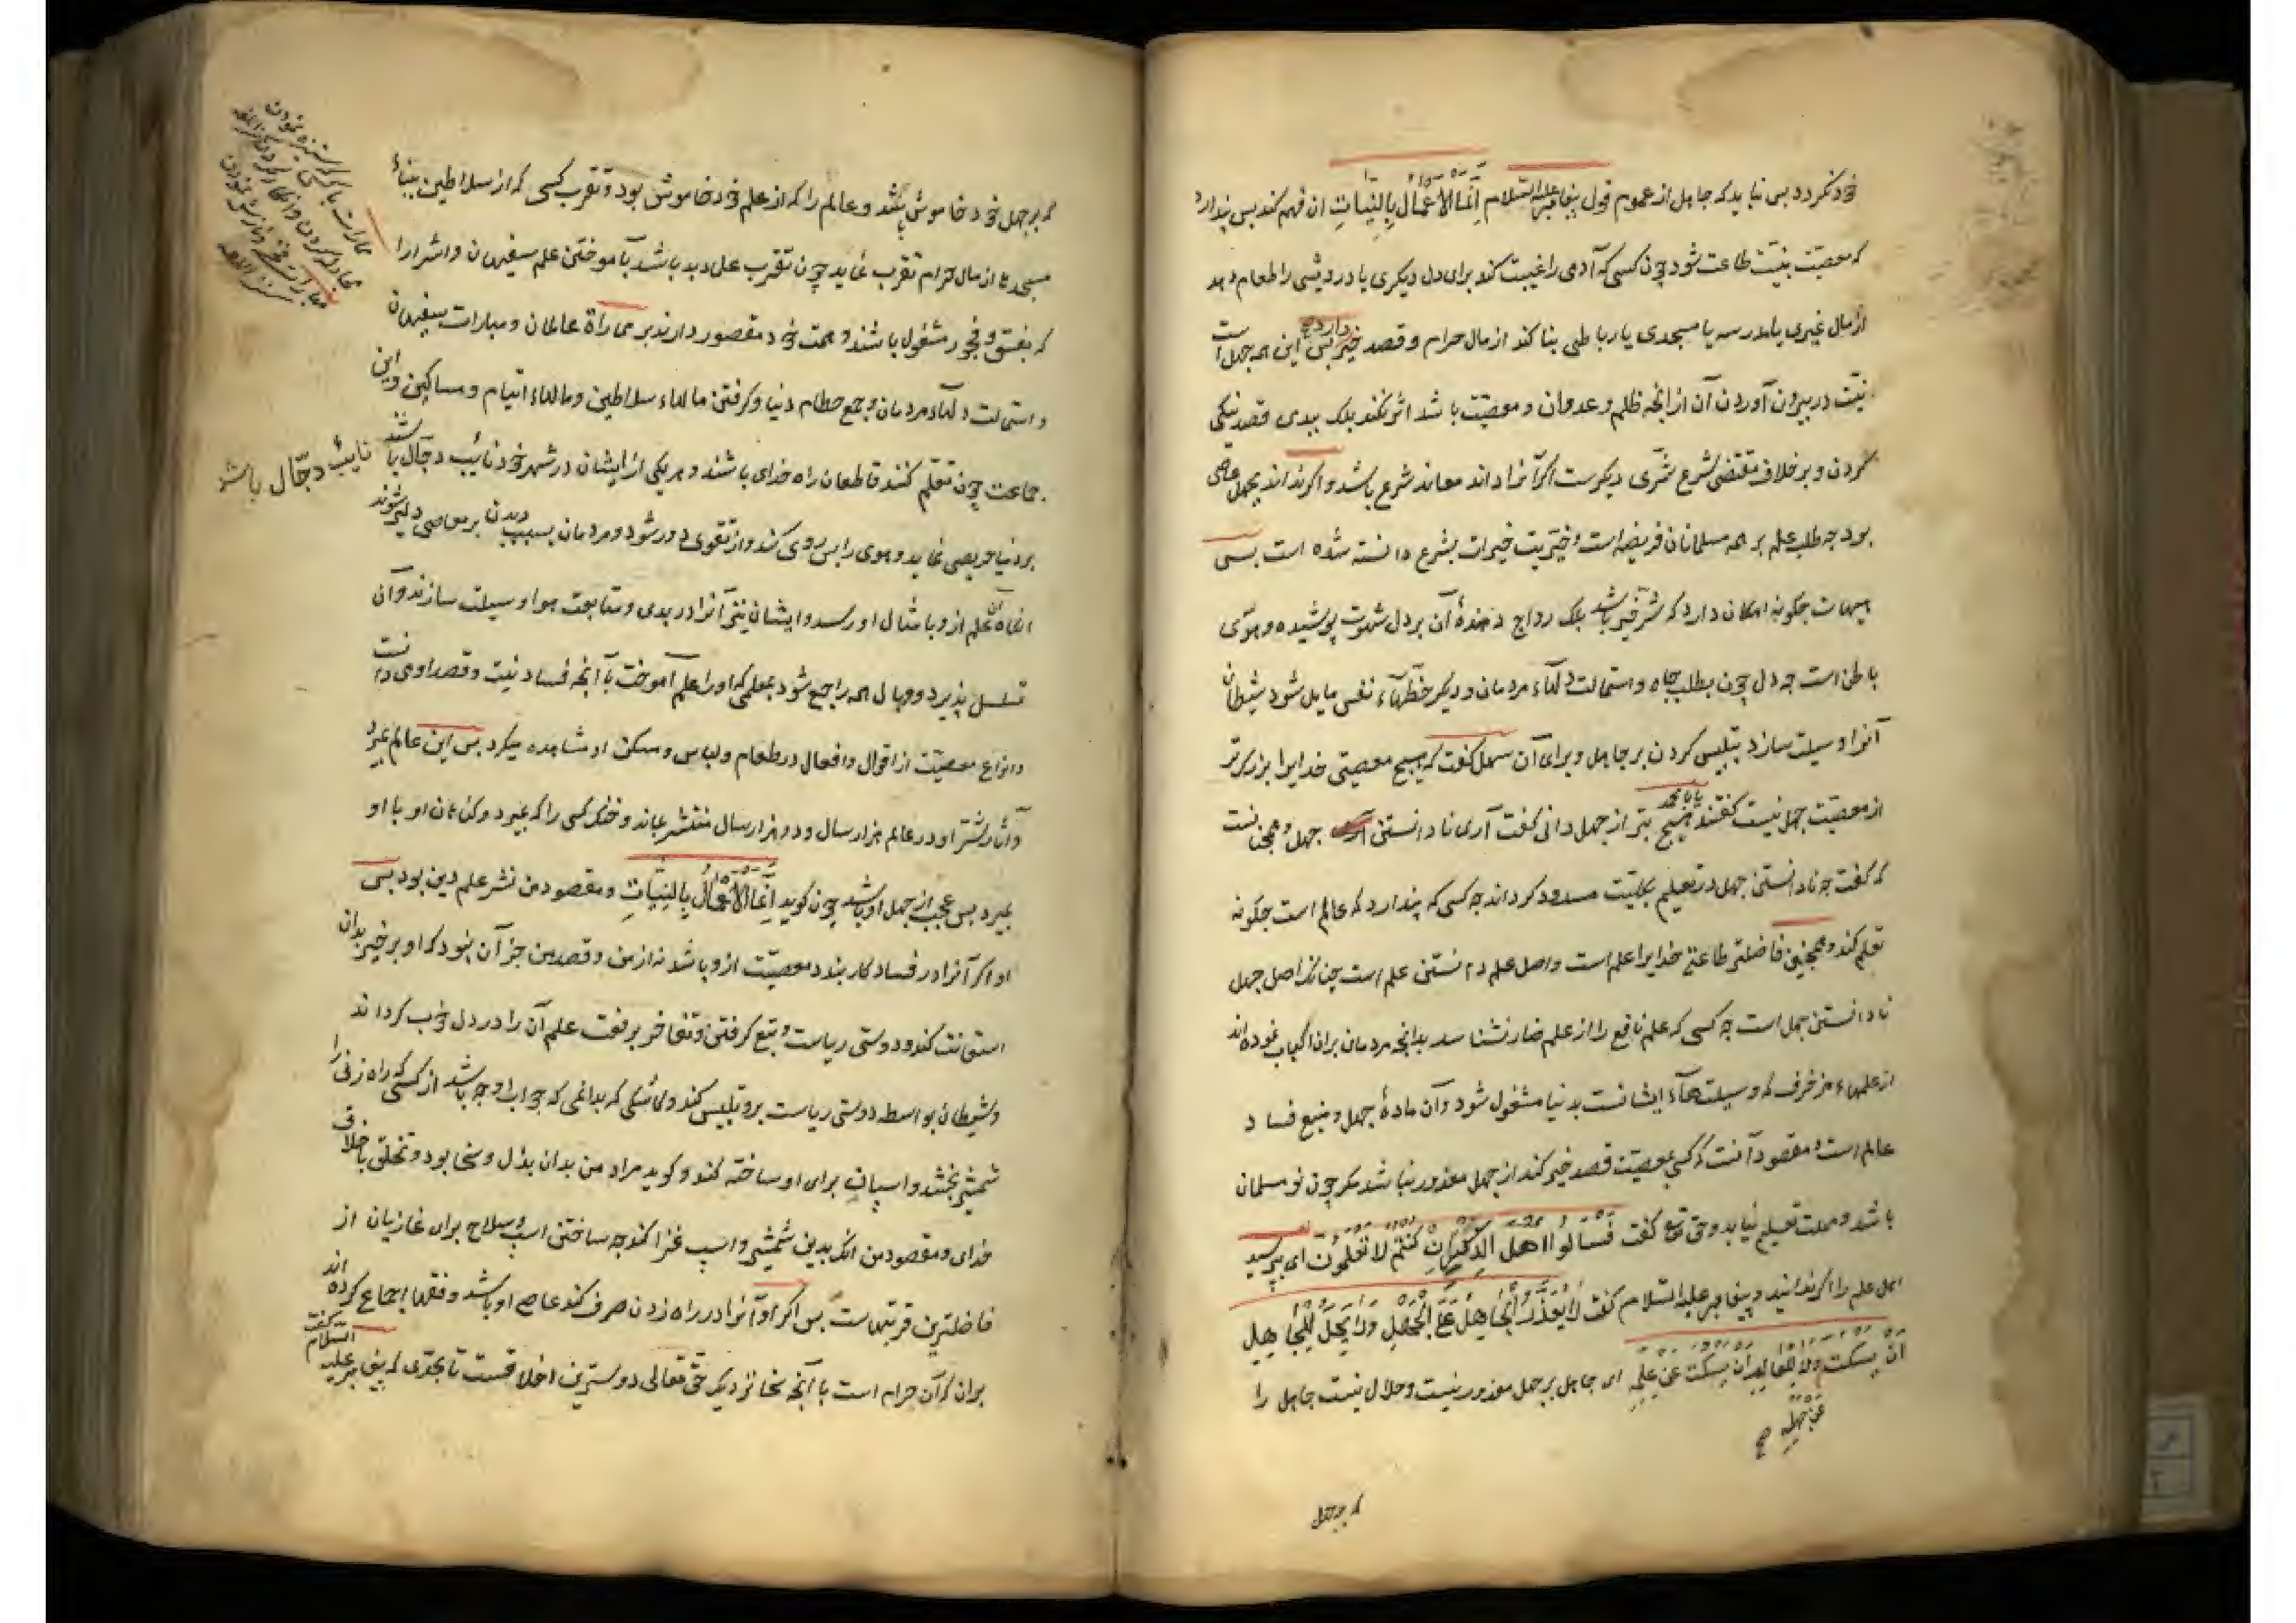 خود نکردد بس نباید که جاهل از عموم قول پیغامبر علیه السلام اِنَّمَا الاَعمَالُ بِالنِّیَاتِ ان فهم کند بس پندارد
که معصیت بنیت طاعت شود چون کسی که آدمی را غیبت کند برای دل دیکری یا درویشی را طعام دهد
از مال غیری یا مدرسه یا مسجدی یا رباطی بنا کند از مال حرام و قصد خیر دارد بس این همه جهل است
نیت در بیرون آوردن آن از انجه ظلم و عدوان و معصیت باشد اثر نکند بلک ببدی قصد نیکی
کردن و بر خلاف مقتضی شرع شرّی دیکرست اکر آنرا داند معاند شرع باشد و اکر نداند بجهل عاصی
بود جه طلب علم بر همه مسلمانان فریضه است و خیریت خیرات بشرع دانسته شده است بس
هیهات جکونه امکان دارد که شر خیر باشد بلک رواج دهندهٔ آن بر دل شهوت پوشیده و هوی
باطن است جه دل چون بطلب جاه و استمالت دلهاء مردمان و دیکر حظهاء نفس مایل شود شیطان
آنرا وسیلت سازد بتلبیس کردن بر جاهل و برای آن سهل کفت که هیچ معصیتی خدایرا بزرکتر
از معصیت جهل نیست کفتند یابا محمد هیچ بتر از جهل دانی کفت آری نادانستن جهل و همجنانست
که کفت جه نادانستن جهل در تعلیم بکلیت مسدود کرداند جه کسی که پندارد که عالم است جکونه
تعلم کند و همجنین فاضلتر طاعتی خدایرا علم است و اصل علم دانستن علم است چنانک اصل جهل
نادانستن جهل است جه کسی که علم نافع را از علم ضار نشناسد بدانجه مردمان بران اکباب نموده‌اند
از علمهاء مزخرف که وسیلتهاء ایشانست بدنیا مشغول شود و آن مادهٔ جهل و منبع فساد
عالم است و مقصود آنست که کسی بمعصیت قصد خیر کند از جهل معذور نباشد مکر چون نو مسلمان
باشد و مهلت تعلیم نیابد و حق تع کفت فَسئَلُوا اَهلَ الذِّکرِ اِن کُنتُم لَا تَعلَمُونَ ای بپرسید
اهل علم را اکر ندانید و پیغامبر علیه السلام کفت لَا یُعذَرُ الجَاهِلُ عَلَی الجَهلِ وَلَا یَحِلُّ لِلجَاهِلِ
اَن یَسکُتَ وَلَا لِلعَالِمِ اَن یَسکُتَ عَن عِلمِهِ ای جاهل بر جهل معذور نیست و حلال نیست جاهل را
عن جهله صح
که برجهل
که بر جهل خود خاموش باشد و عالم را که از علم خود خاموش بود و تقرب کسی که از سلاطین ببناء
مسجدها از مال حرام تقرب نماید چون تقرب علماء بد باشد بآموختن علم سفیهان و اشرار را
که بفسق و فجور مشغول باشند و همت خود مقصور دارند بر مماراة عالمان و مبارات سفیهان
و استمالت دلهاء مردمان و جمع حطام دنیا و کرفتن مالهاء سلاطین و مالهاء ایتام و مساکین و این
جماعت چون تعلم کنند قاطعان راه خدای باشند و هر یکی از ایشان در شهر خود نائب دجال باشد
بر دنیا حریصی نماید و هوی را بس روی کند و از تقوی دور شود و مردمان بسبب دیدن بر معاصی دلیر شوند
انکاه آن علم ازو بامثال او رسد و ایشان نیز آنرا در بدی و متابعت هوا وسیلت سازند و آن
تسلسل پذیرد و وبال همه راجع شود بمعلمی که او را علم آموخت با آنجه فساد نیت و قصد او می دانست
و انواع معصیت از اقوال و افعال در طعام و لباس و مسکن او مشاهده میکرد بس این عالم بمیرد
و آثار شر او در عالم هزار سال و دو هزار سال منتشر بماند و خنک کسی را که بمیرد و کناهان او با او
بمیرد بس عجب از جهل او باشد چون کوید اِنَّمَا الاَعمَالُ بِالنِّیَّاتِ و مقصود من نشر علم دین بود بس
او اکر آنرا در فساد کار بندد معصیت ازو باشد نه از من و قصد من جز آن نبود که او بر خیر بدان
استعانت کند و دوستی ریاست و تبع کرفتن و تفاخر برفعت علم آن را در دل خوب کرداند
و شیطان بواسطه دوستی ریاست برو تلبیس کند و کاشکی که بدانمی که جواب او جه باشد از کسی که راه زنی را
شمشیر بخشد و اسپان برای او ساخته کند و کوید مراد من بدان بذل و سخا بود و تخلق باخلاق
خدای و مقصود من انک بدین شمشیر و اسپ غزا کند جه ساختن اسپ و سلاح برای غازیان از
فاضلترین قربتهاست بس اکر او آنرا در راه زدن صرف کند عاصی او باشد و فقها اجماع کرده اند
بران که آن حرام است با آنجه سخا نزدیک حق تعالی دوسترین اخلاقست تا بحدی که پیغامبر علیه السلام کفت
نایب دجّال باشد